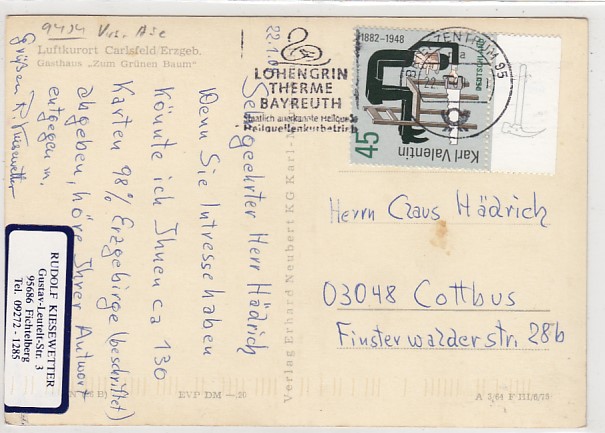 9434 Vus. Ase
Luftkurort Carlsfeld/Erzgeb.
Gasthaus „Zum Grünen Baum"
22.1.01
Sehr geehrter Herr Hädrich
Wenn Sie Intresse haben
könnte ich Ihnen ca 130
Karten 98% Erzgebirge (beschriftet)
abgeben, höre Ihrer Antwort
entgegen m.
Grüßen R. Kiesewetter
RUDOLF KIESEWETTER
Gustav-Leutelt-Str. 3
95686 Fichtelberg
Tel. 09272 - 1285
EVP DM — 20
Verlag Erhard Neubert KG Karl-
LOHENGRIN
THERME
BAYREUTH
Staatlich anerkannte Heilquelle
Heilquellenkurbetrieb
BRIEFZENTRUM 95
1882–1948
Karl Valentin
45
Herrn Claus Hädrich
03048 Cottbus
Finsterwalderstr. 28b
A 3/64 F III/6/73